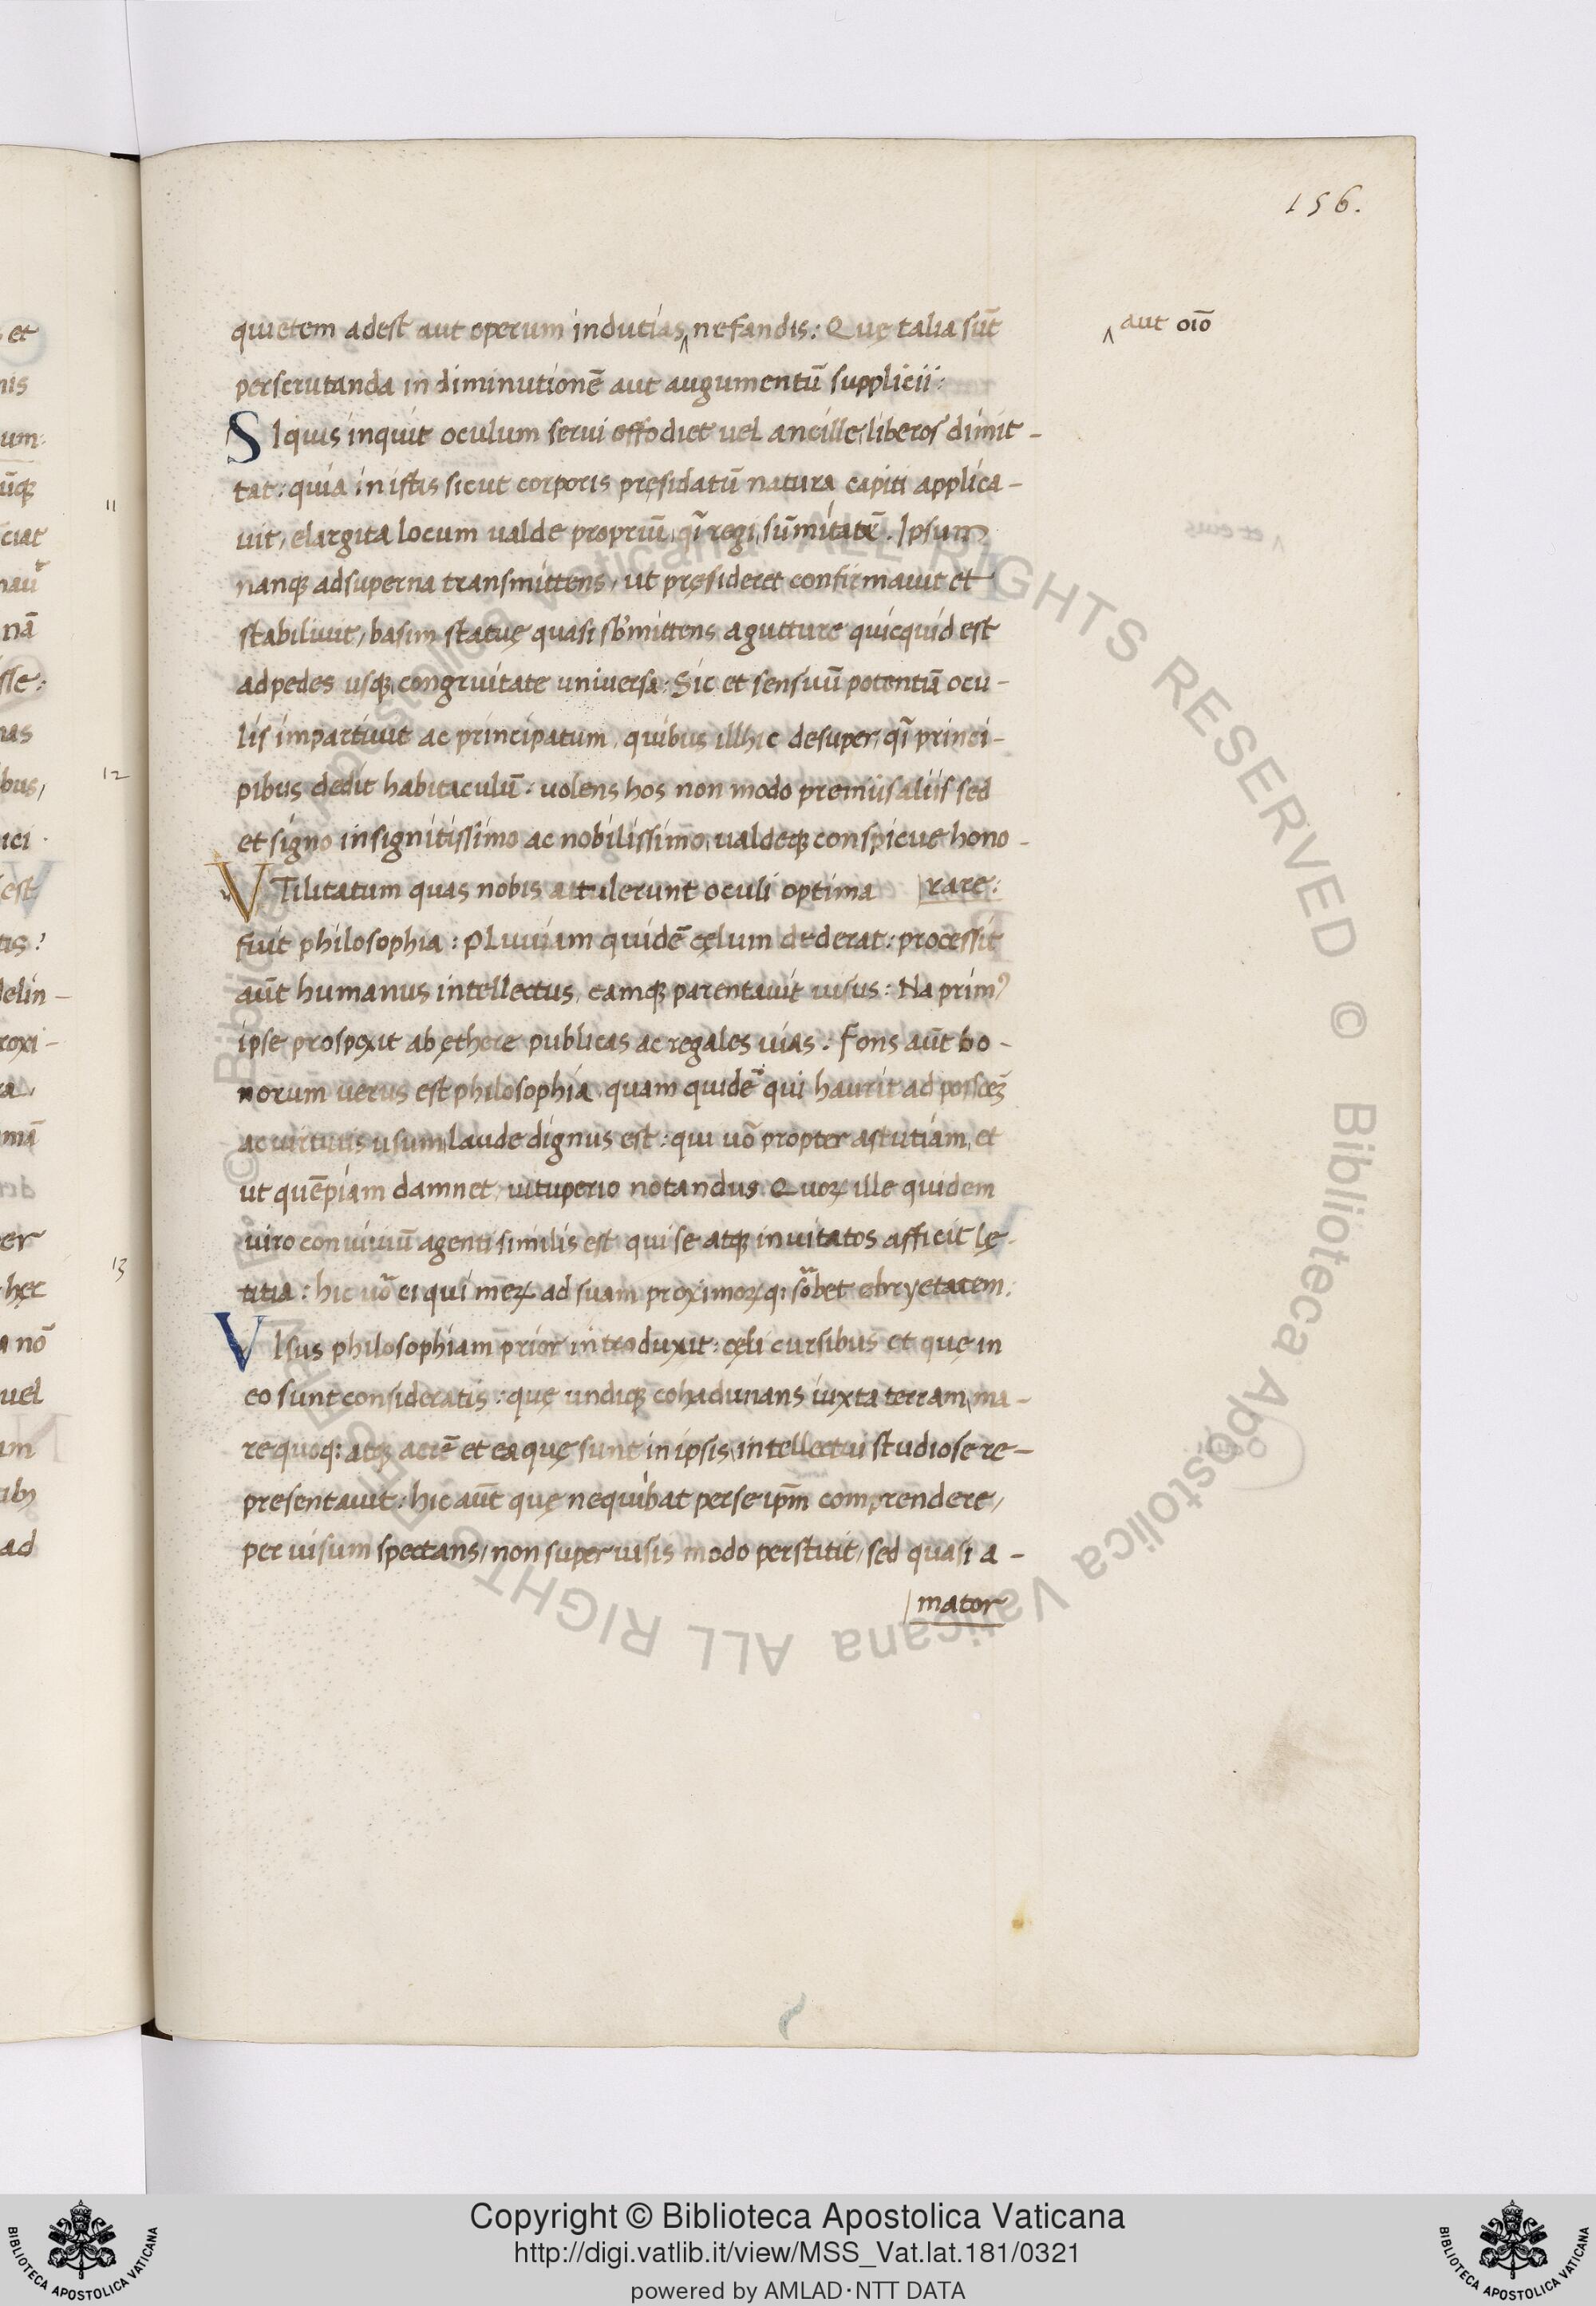 156.
quietem adest aut operum indutias ‸ nefandis: Quę talia sūt
‸ aut oīo
perscrutanda in diminutionē aut augumentū supplicii:
SIquis inquit oculum servi effodiet uel ancille, liberos dimit-
tat: quia in istis sicut corporis pręsidatū natura capiti applica-
uit, elargita locum ualde propriū, q̄i regi, sūmitatē. Ipsum
nanq; ad superna transmittens, ut pręsideret confirmauit et
stabiliuit, basim statuę quasi sb'mittens a gutture quicquid est
ad pedes usq; congruitate universa: Sic et sensuū potentiā ocu-
lis impartiuit ac principatum, quibus illhic desuper, q̄i princi-
pibus dedit habitaculū: uolens hos non modo premiis aliis sed
et signo insignitissimo ac nobilissimo, ualdeq; conspicue hono-
VTilitatum quas nobis attulerunt oculi optima rare:
fuit philosophia: Pluuiam quidē cęlum dederat: processit
aūt humanus intellectus, eamq; parentauit uisus: Na prim9
ipse prospexit ab ęthere publicas ac regales uias: Fons aūt bo-
norum uerus est philosophia, quam quidē qui haurit ad
ac uirtutis usum, laude dignus est: qui uō propter astutiam, et
ut quēpiam damnet, uituperio notandus. Quoꝝ ille quidem
uiro conuiuiū agenti similis est qui se atq; inuitatos afficit lę-
titia: hic uō ei qui meꝝ ad suam proximoꝝq; sōbet ebryetatem:
VIsus philosophiam prior introduxit: cęli cursibus et quę in
eo sunt consideratis: quę undiq; cohadunans iuxta terram, ma-
re quoq; atq; aerē et ea quę sunt in ipsis, intellectui studiose re-
presentauit: hic aūt quę nequibat per se ip̄m comprendere,
per uisum spectans, non super uisis modo perstitit, sed quasi a-
mator
et
nis
um:
ūq;
11
ciat
nā
12
bus,
ici
est
tis?
elin-
roxi-
mā
er
13
hęc
a nō
uel
am
ad
© Biblioteca Apostolica Vaticana ALL RIGHTS RESERVED © Biblioteca Apostolica Vaticana ALL RIGHTS RESERVED
Copyright © Biblioteca Apostolica Vaticana
http://digi.vatlib.it/view/MSS_Vat.lat.181/0321
powered by AMLAD·NTT DATA
BIBLIOTECA APOSTOLICA VATICANA
BIBLIOTECA APOSTOLICA VATICANA